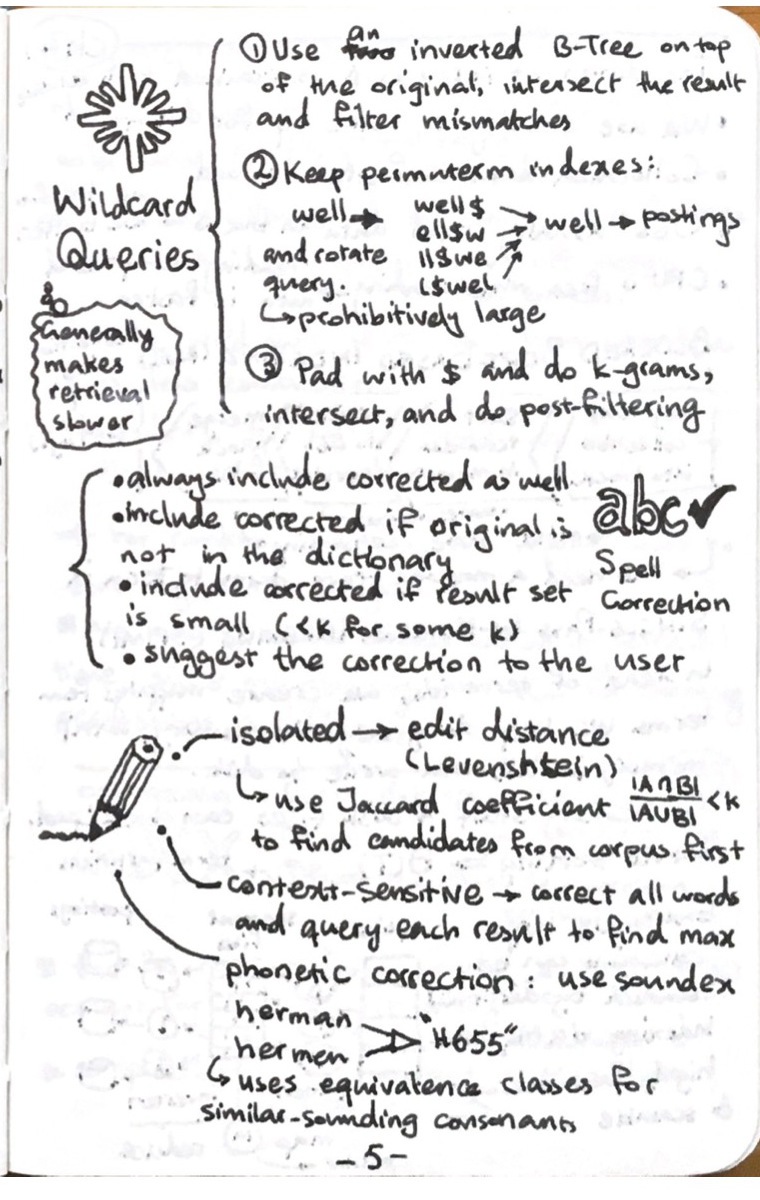 Wildcard
Queries
Generally
makes
retrieval
slower
① Use an inverted B-Tree on top
of the original, intersect the result
and filter mismatches
② Keep permuterm indexes:
well → well$ → well → postings
ell$w
and rotate ll$we
query. l$wel
↳ prohibitively large
③ Pad with $ and do k-grams,
intersect, and do post-filtering
• always include corrected as well
• include corrected if original is
not in the dictionary
• include corrected if result set
is small (<k for some k)
• suggest the correction to the user
abc✔
Spell
Correction
isolated → edit distance
(Levenshtein)
↳ use Jaccard coefficient |A∩B| / |A∪B| < k
to find candidates from corpus first
context-sensitive → correct all words
and query each result to find max
phonetic correction: use soundex
herman
hermen → "H655"
↳ uses equivalence classes for
similar-sounding consonants
- 5 -